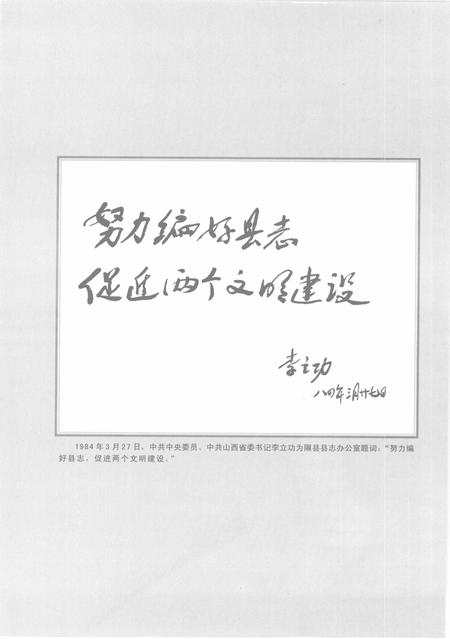 努力编好县志
促进两个文明建设
李立功
八四年三月廿七日
1984年3月27日，中共中央委员、中共山西省委书记李立功为隰县县志办公室题词：“努力编
好县志，促进两个文明建设。”